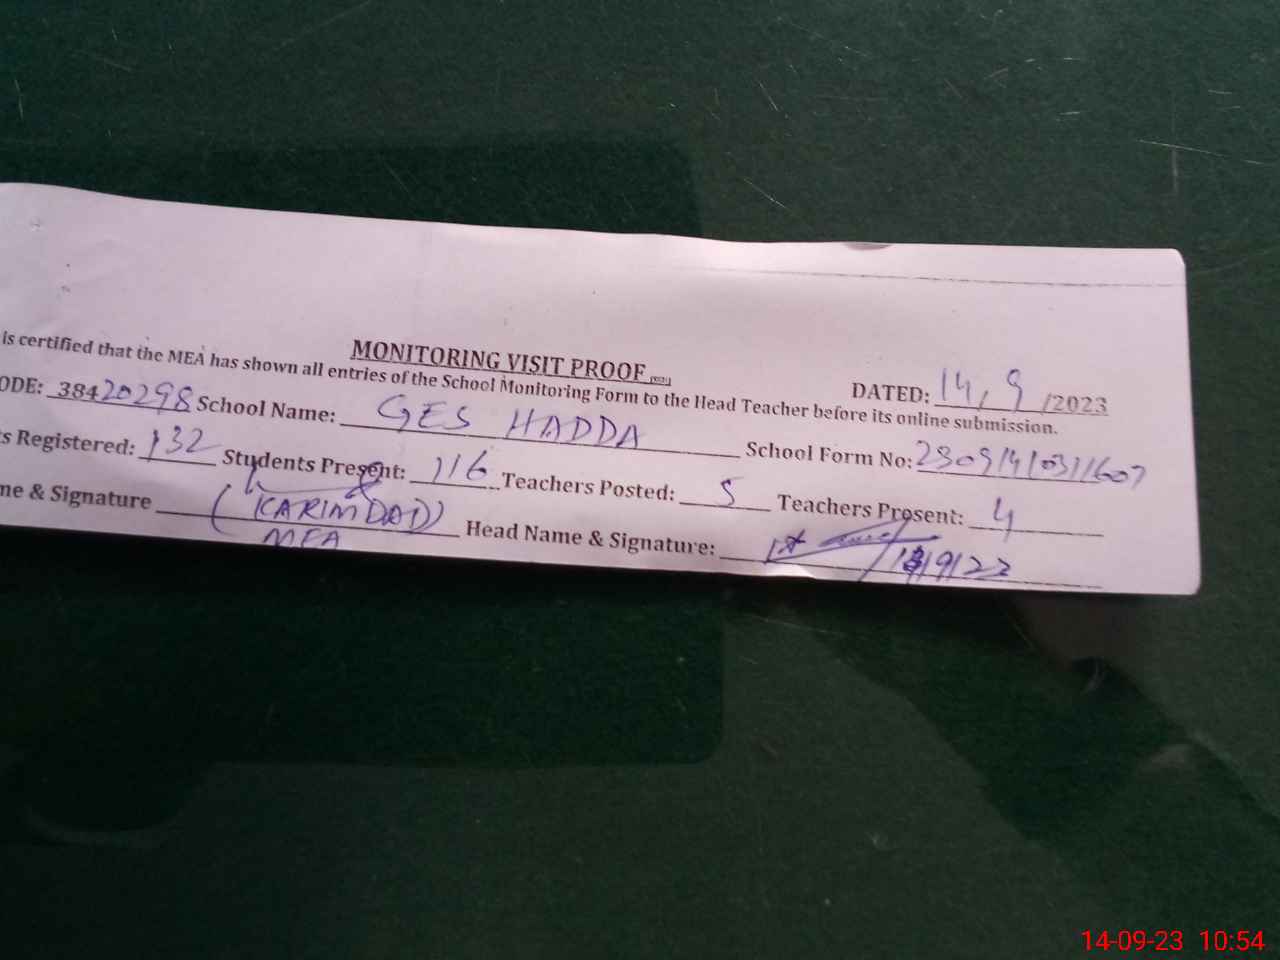 MONITORING VISIT PROOF
DATED: 14, 9 /2023
is certified that the MEA has shown all entries of the School Monitoring Form to the Head Teacher before its online submission.
ODE: 38420298 School Name: GES HADDA School Form No:
s Registered: 132 Students Present: 116 Teachers Posted: 5 Teachers Present: 4
me & Signature (KARIMDAD) Head Name & Signature:
MEA
14-09-23 10:54